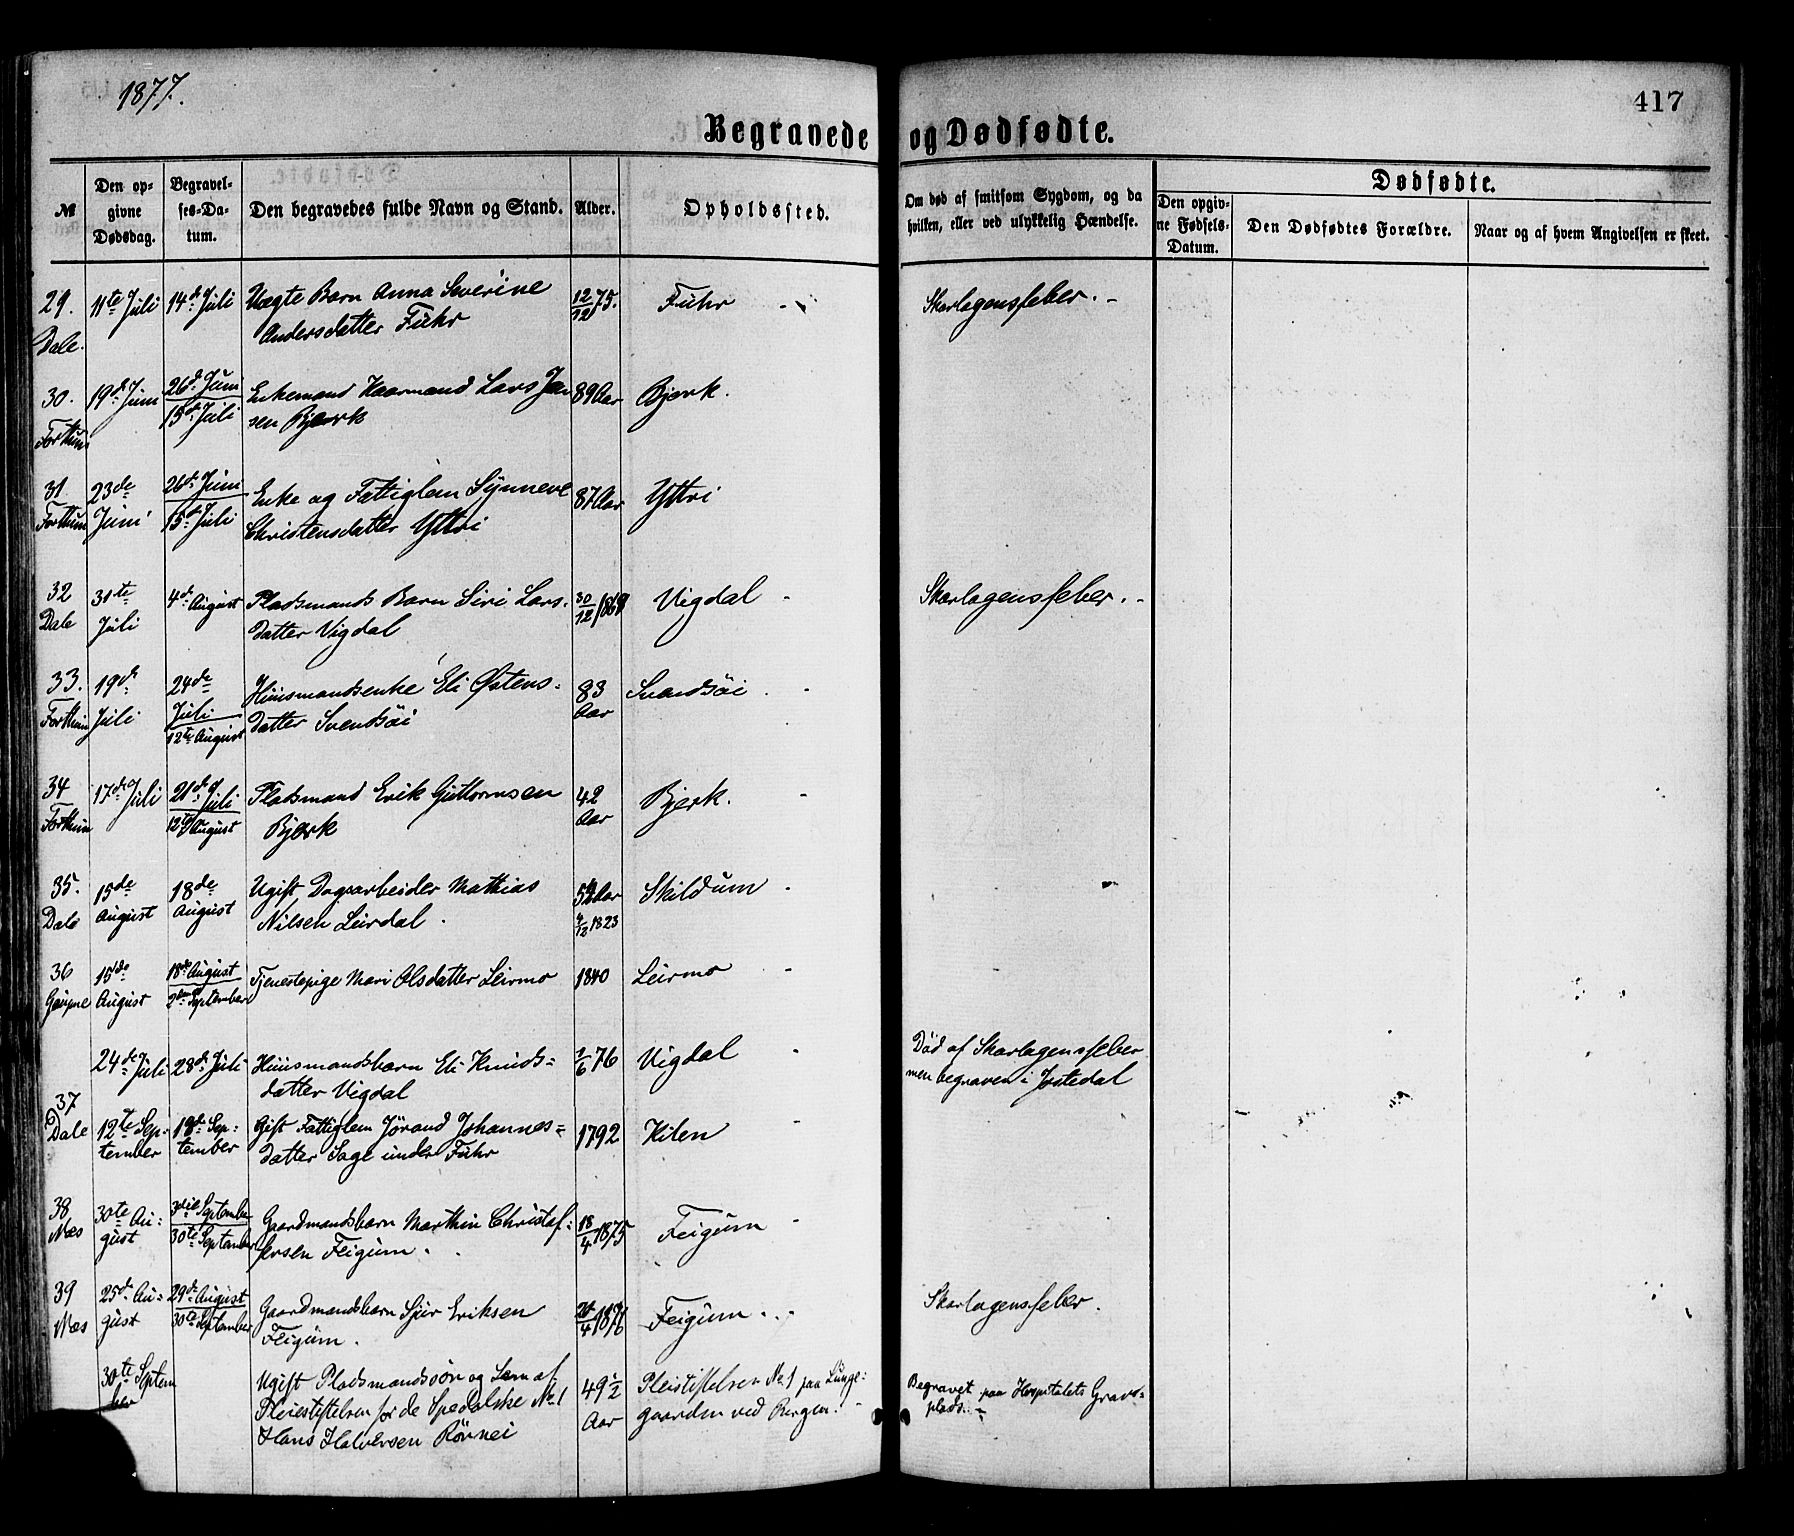 1877.
417
Begravede og Dødfødte.
№
Den opgivne Dødsdag.
Begravelses-Datum.
Den begravedes fulde Navn og Stand.
Alder.
Opholdssted.
Om død af smitsom Sygdom, og da hvilken, eller ved ulykkelig Hændelse.
Dødfødte.
Den opgivne Fødsels-Datum.
Den Dødfødtes Forældre.
Naar og af hvem Angivelsen er skeet.
29. 11te Juli 14de Juli Uægte Barn Anna Severine 12/12 75. Fuhr Skarlagensfeber.
Dale. Andersdatter Fuhr
30. 19de Juni 26de Juni Enkemand Kaarmand Lars Jen 89 Aar Bjerk.
Forthun 15de Juli sen Bjerk
31 23de 26de Juni Enke og Fattiglem Synneve 87 Aar Yttri
Forthun Juni 15de Juli Christensdatter Yttri
32 31te 4de August Pladsmands Barn Siri Lars- 30/12 1869 Vigdal Skarlagensfeber.
Dale Juli datter Vigdal
33. 19de 24de Huusmandsenke Eli Østens- 83 Svendsøi
Forthun Juli Juli datter Svendsøi Aar
12te August
34 17de Juli 21de Juli Pladsmand Erik Guttormsen 42 Bjerk.
Forthun 12te August Bjerk Aar
35. 15de 18de Ugift Dagsarbeider Mathias 54 Aar Skildum
Dale August August Nilsen Leirdal. 4/12 1823
36 15de 18de August Tjenestepige Mari Olsdatter Leirmo 1840 Leirmo
Gaupne August 2den September
24de Juli 28de Juli Huusmandsbarn Eli Knuds- 76 Vigdal Død af Skarlagensfeber
datter Vigdal men begraven i Jostedal
37
Dale 12te Sep- 18de Sep- Gift Fattiglem Jørand Johannes- 1792 Kilen
tember tember datter Sage under Fuhr
38 30te Au- 3die September Gaardmandsbarn Marthin Christof- 18/4 1875 Feigum
Næs gust 30te September fersen Feigum.
39 25de Au- 29de August Gaardmandsbarn Sjur Eriksen 20/4 1876 Feigum. Skarlagensfeber.
Næs gust 30te September Feigum.
30te Septem Ugift Pladsmandssøn og Lem af 49 1/2 Pleistiftelsen No. 1 paa Lunge- Begravet paa Hospitalets Grav-
ber Pleiestiftelsen for de Spedalske No. 1 Aar gaarden ved Bergen. plads.
Hans Halvorsen Rønnei